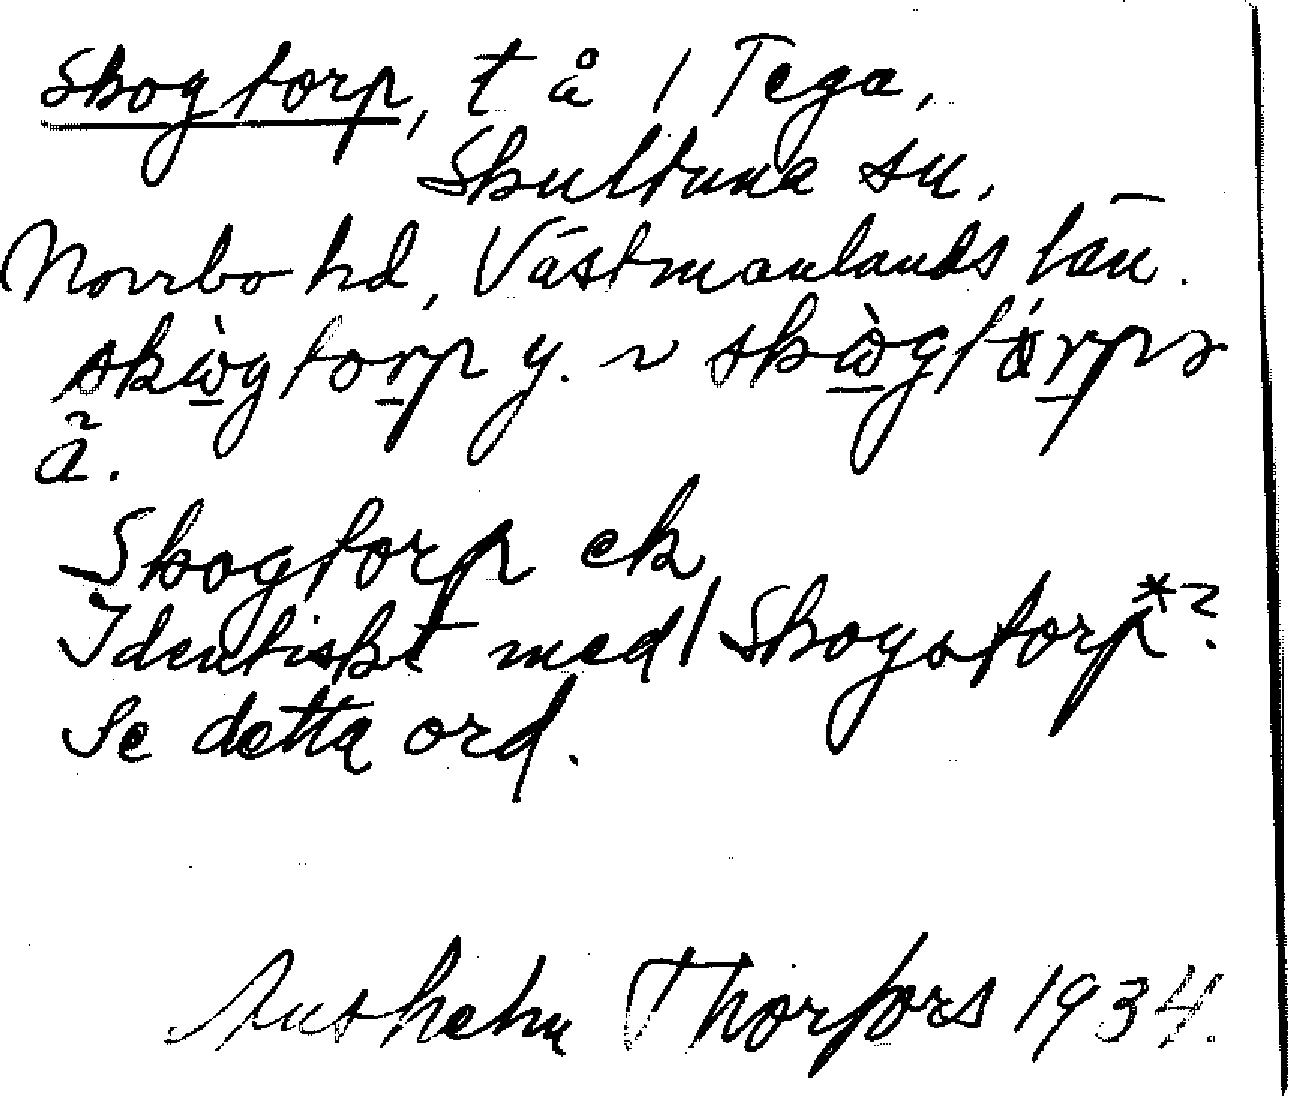 Skogtorp, t å 1 Tega,
Skultuna sn.
Norrbo hd, Västmanlands län.
skògtorp y. ~ skògtårp
ä.
Skogtorp ek
Identiskt med Skogstorp*?
Se detta ord.
Thorfors 1934.